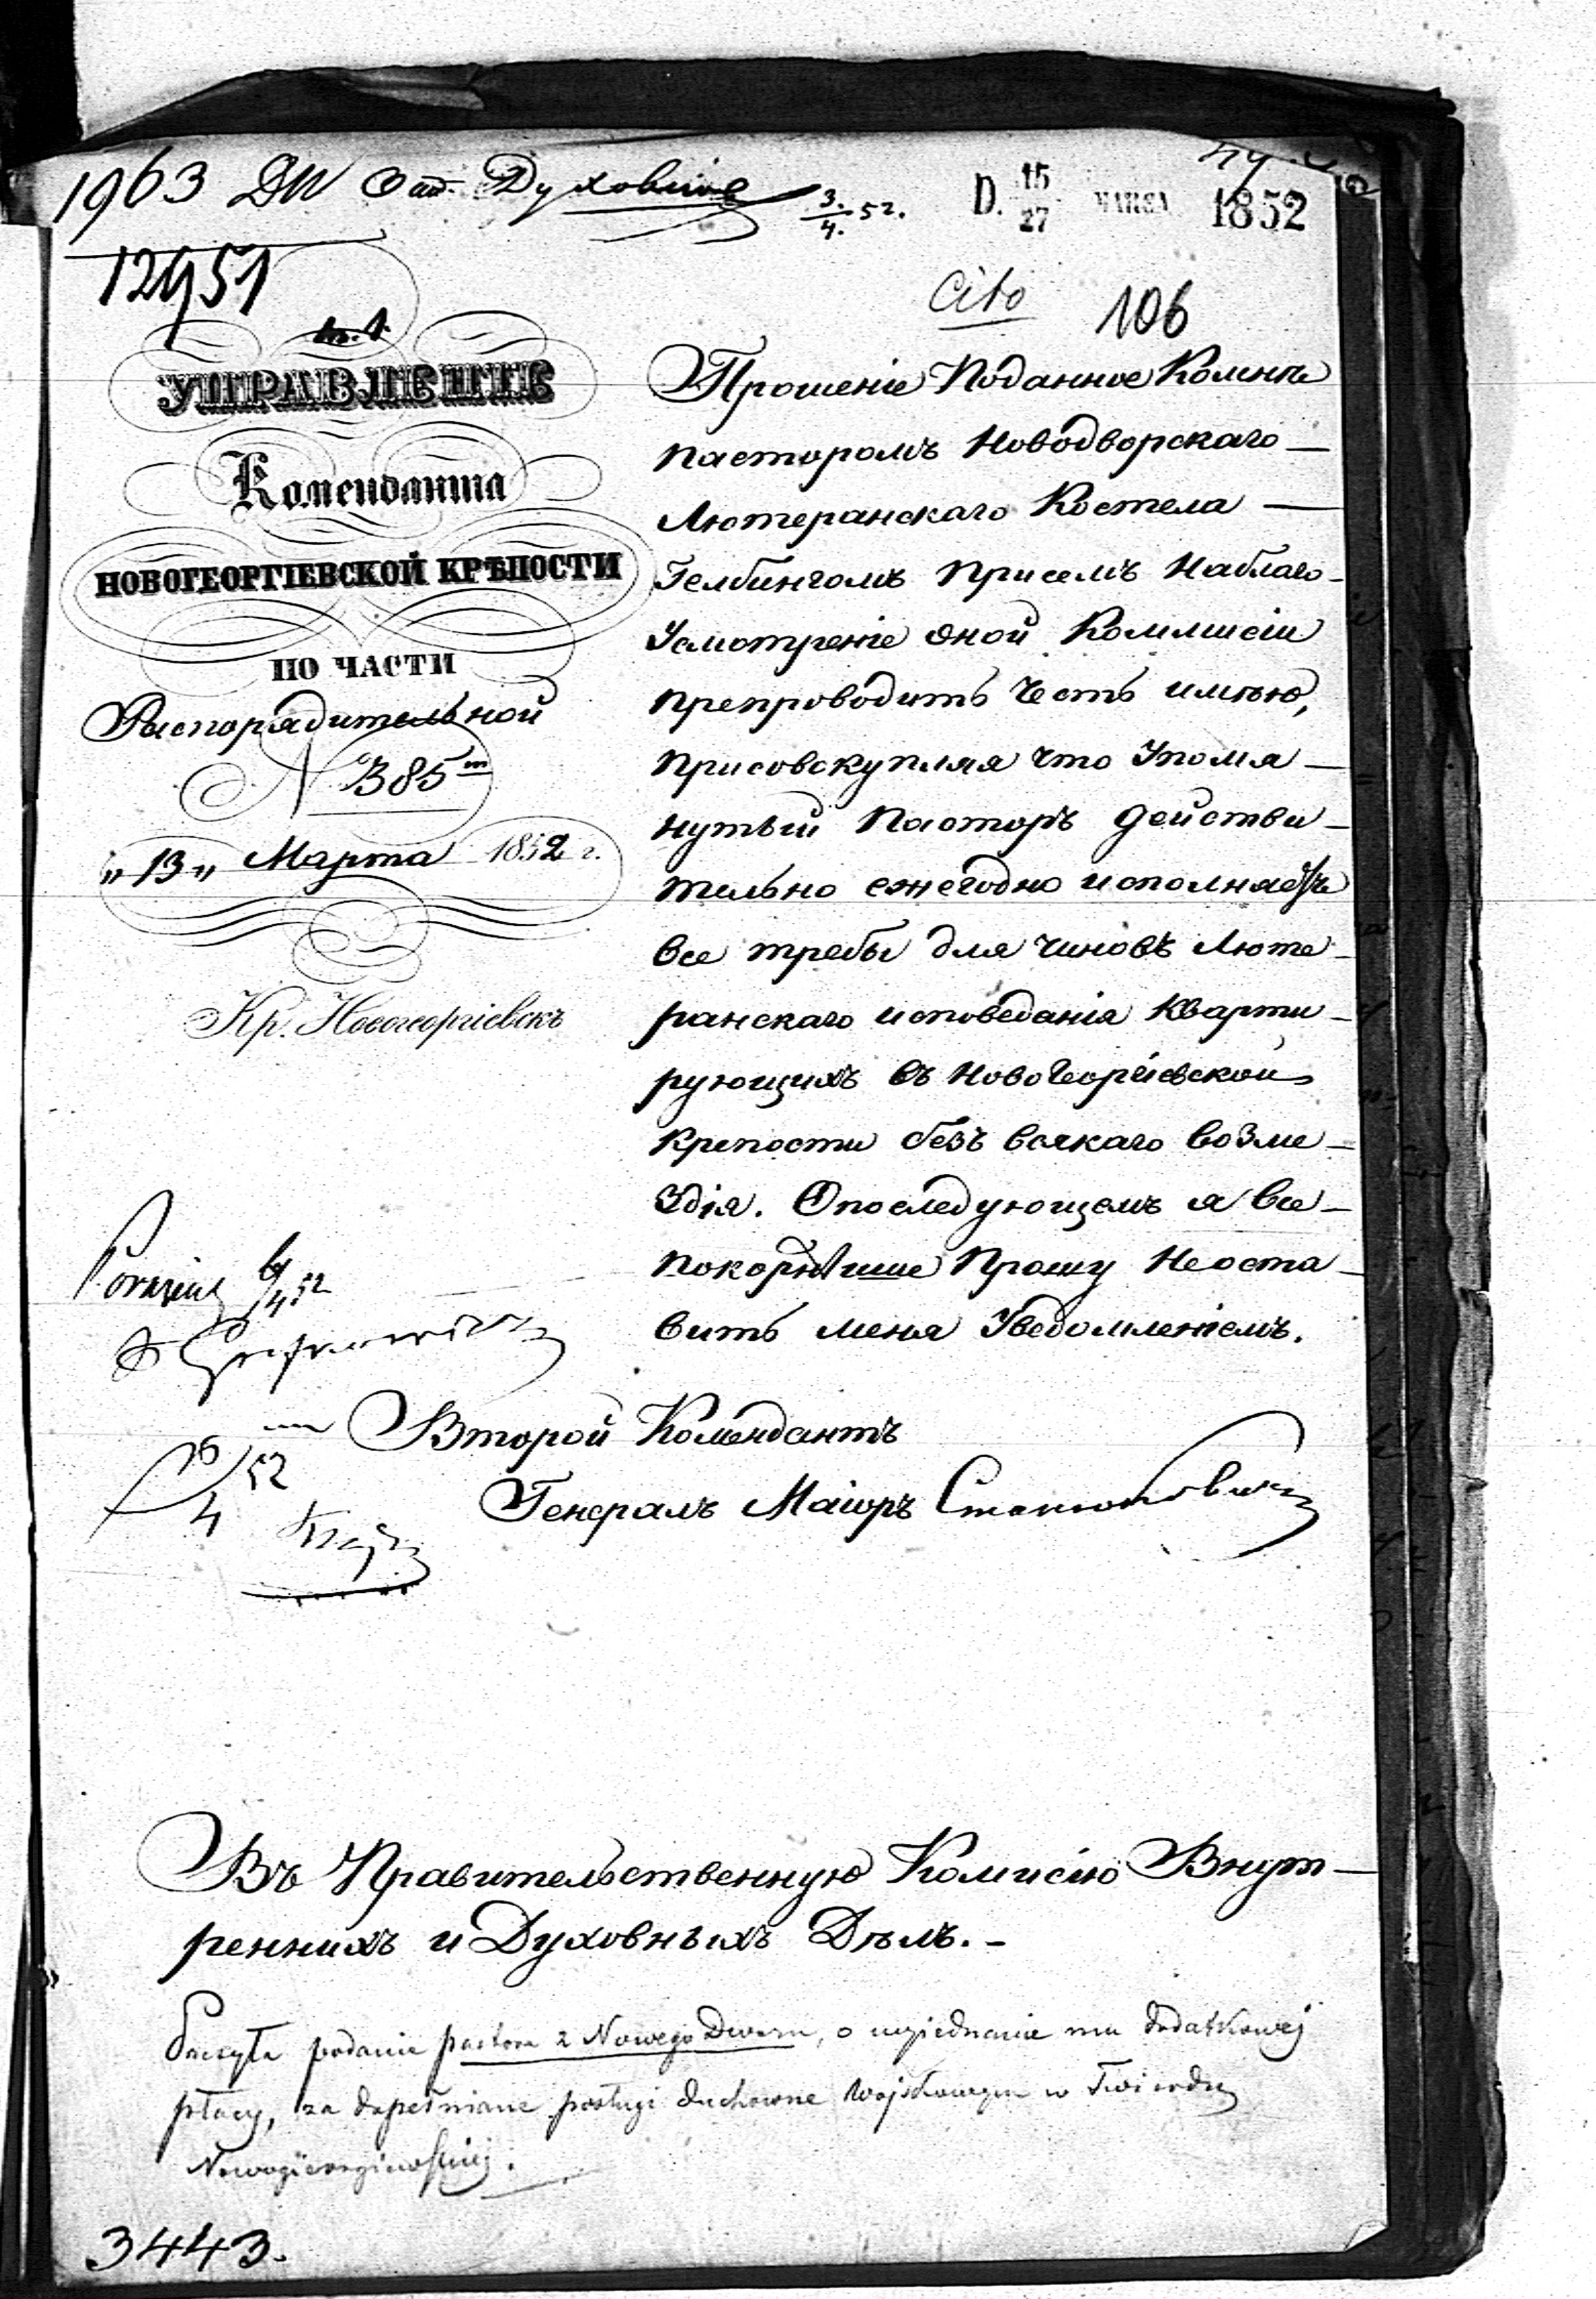 1963 DW
3./4. 52.
D. 15/27 MARCA 1852
12951
Cito 106
УПРАВЛЕНІЕ
Коменданта
НОВОГЕОРГІЕВСКОЙ КРѢПОСТИ
ПО ЧАСТИ
Распорядительной
N 385
„13„ Марта 1852 г.
Кр. Новогеоргіевскъ
Прошеніе Поданное Комнѣ
пасторомъ Новодворскаго
Лютеранскаго Костела
Гелбингомъ присемъ Наблаго-
Усмотреніе оной Коммисіи
препроводить Честь имѣю,
присовокупляя что Упомя-
нутый Пасторъ действи-
тельно ежегодно исполняетъ
все требы для чиновъ Люте-
ранскаго исповеданія Кварти-
рующихъ въ Новогеоргіевской
Крепости безъ всякаго возме-
здія. Опоследующемъ я все-
покорнѣише Прошу Неоста-
вить меня Уведомленіемъ.
6/4 52
Второй Комендантъ
16/4 52
Генералъ Маіоръ
Въ Правительственную Комисію Внут-
реннихъ и Духовныхъ Дѣлъ.-
podanie pastora z Nowego Dworu, o wyiednanie mu dodatkowej
płacy, za dopełniane posługi duchowne Wojskowym w Twierdzy
Nowogieorgiewskiej.
3443.